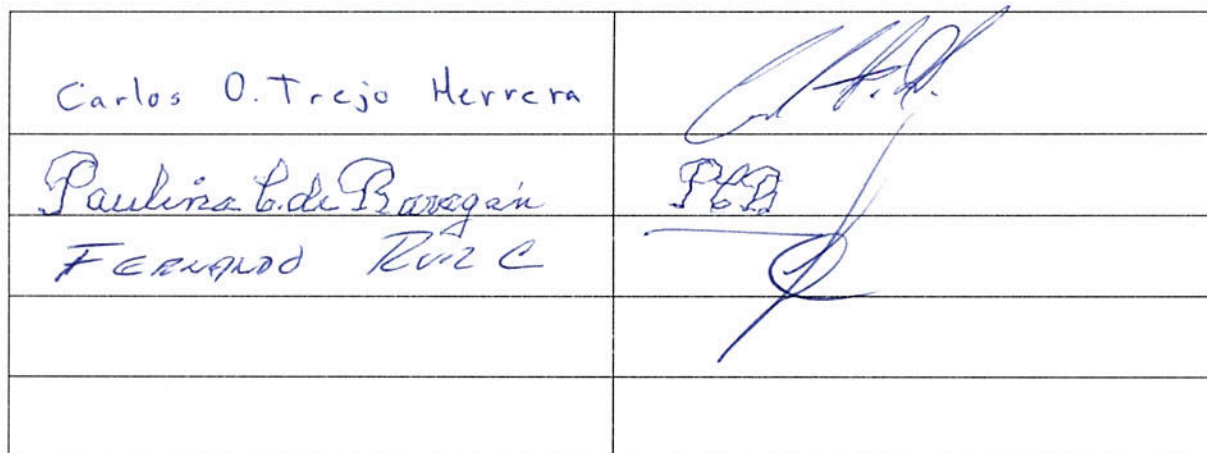 Carlos O. Trejo Herrera
Paulina C. de Baragán PCB
FERNANDO RUIZ C